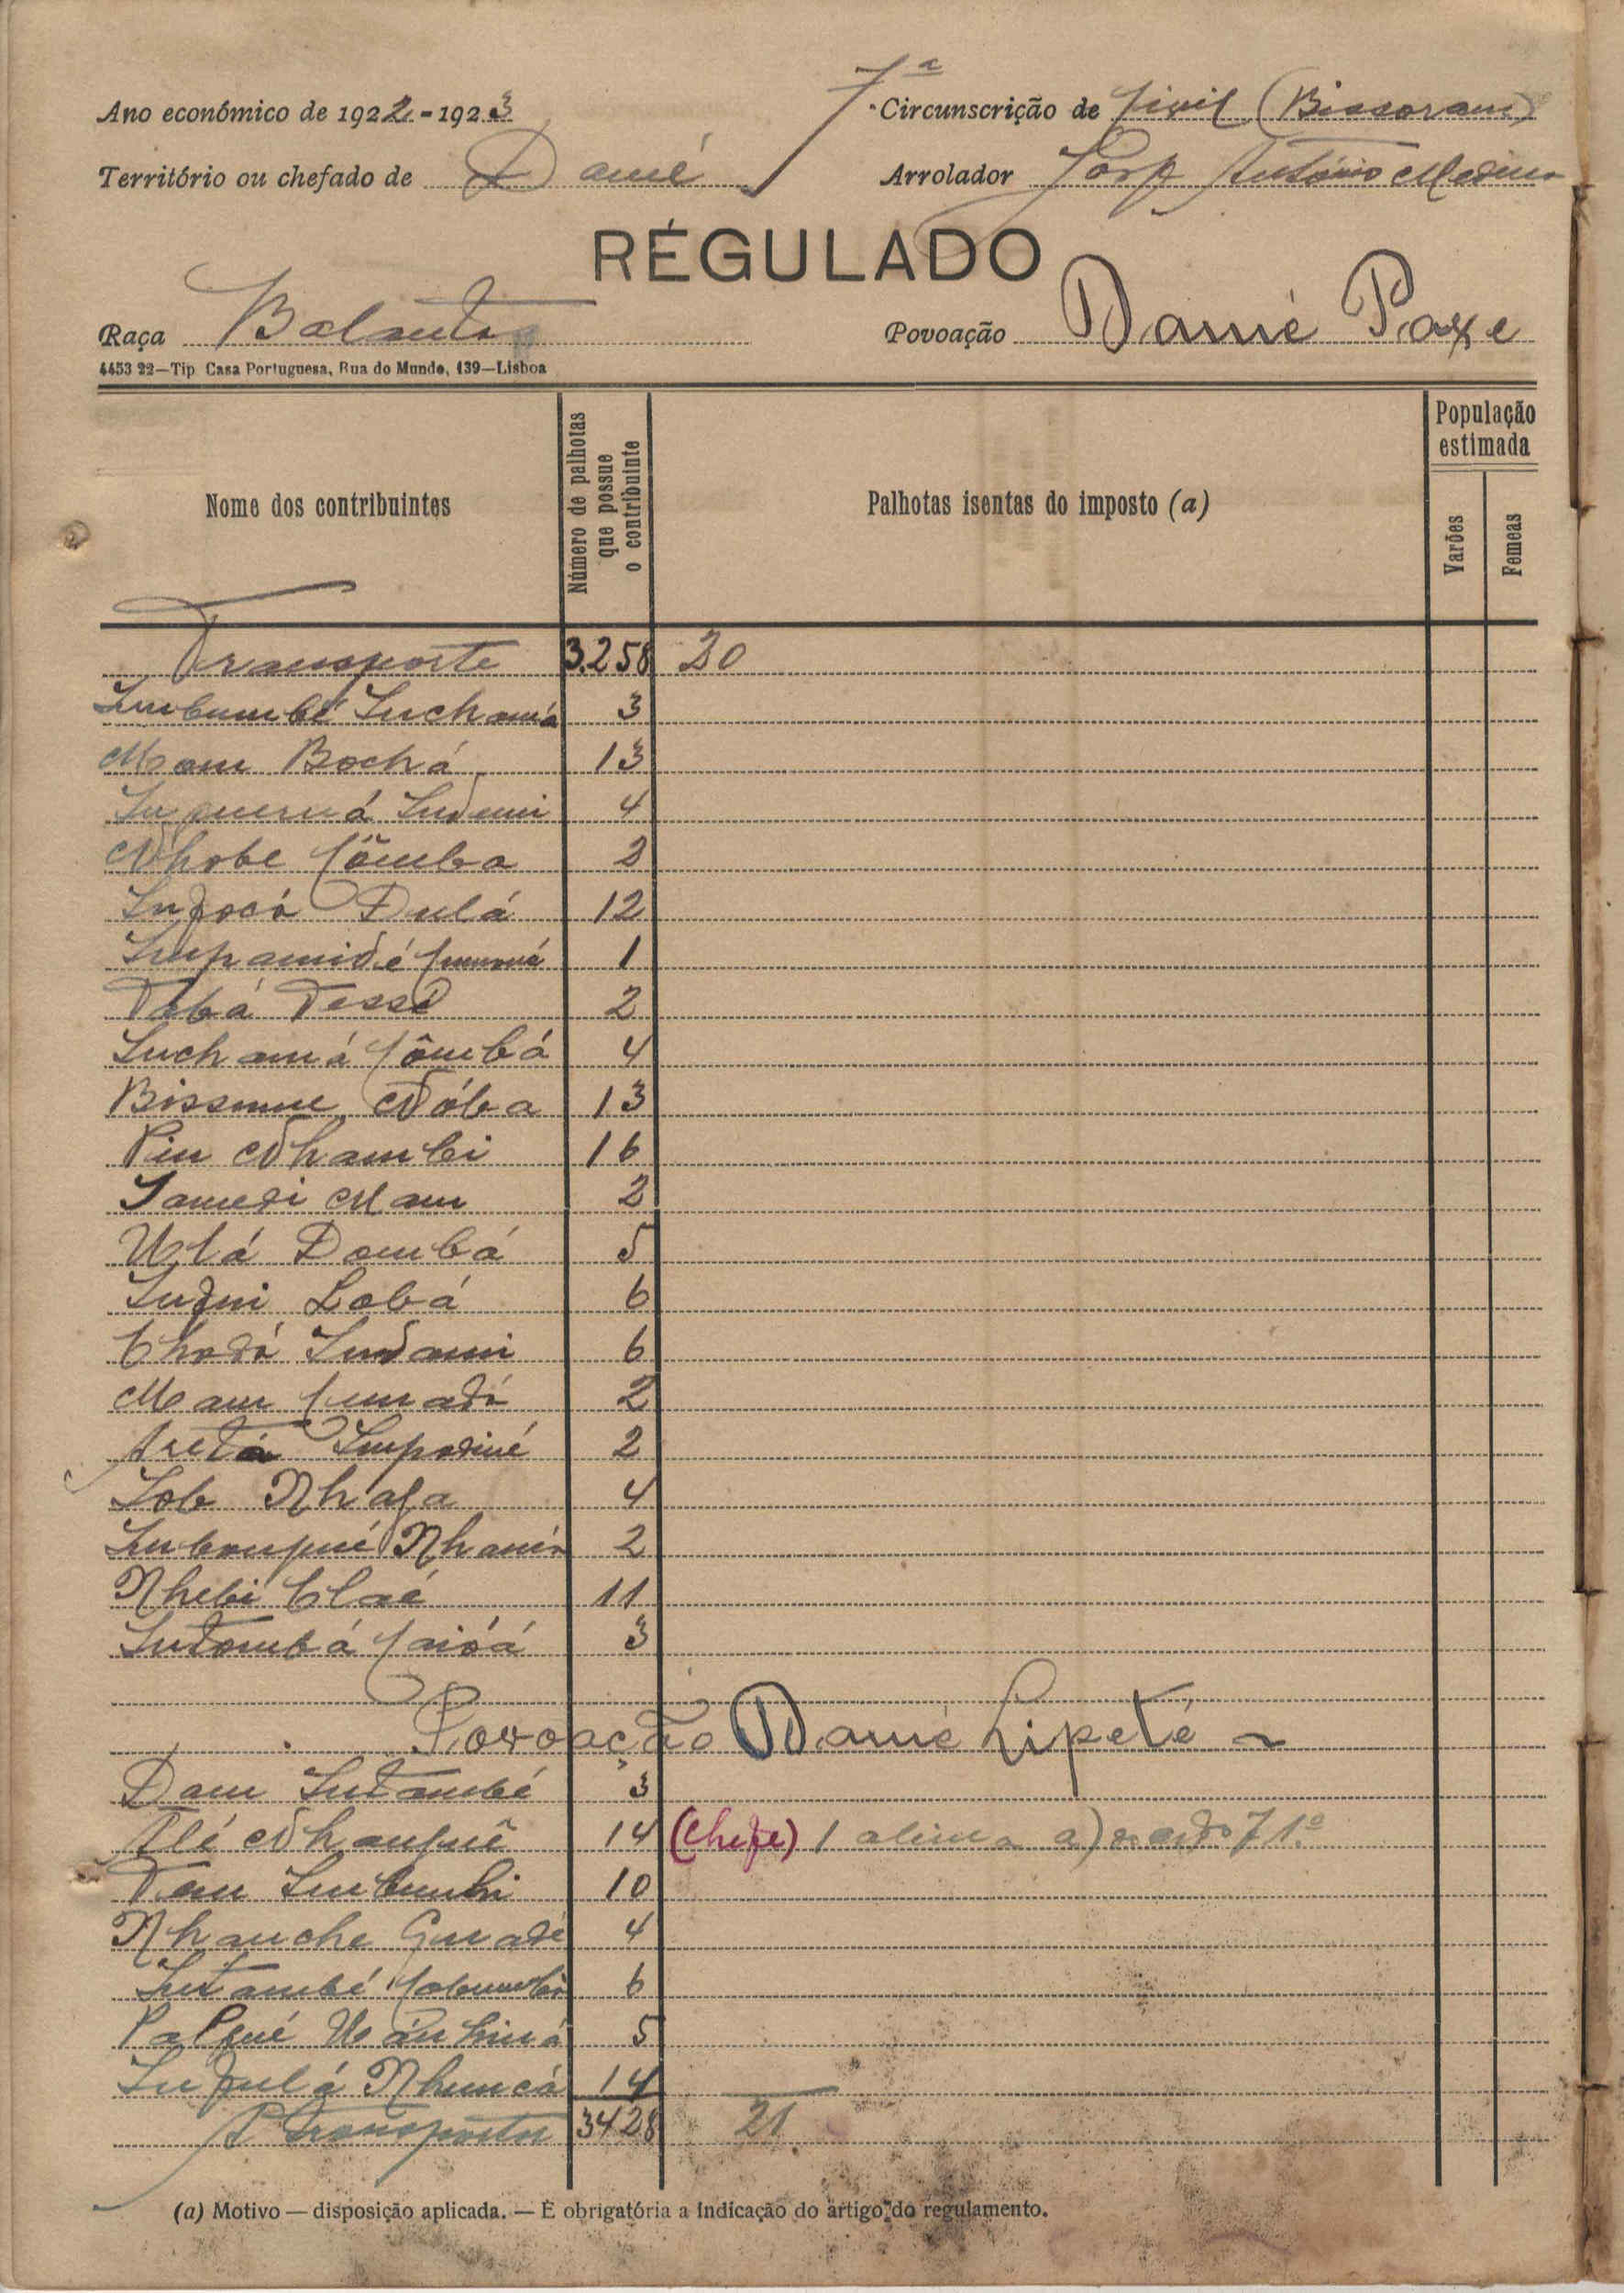 7ª
Ano económico de 1922-1923 Circunscrição de Civil (Bissoram)
Território ou chefado de Damé Arrolador António Medina
RÉGULADO
Raça Balantas Povoação Damé Paxe
4453 22—Tip Casa Portuguesa, Rua do Mundo, 139—Lisboa
Nome dos contribuintes
Número de palhotas que possue o contribuinte
Palhotas isentas do imposto (a)
População estimada
Varões
Femeas
Transporte 3.258 20
Inbumbé Inchamá 3
Mam Bochá 13
4
Nhobe Cômba 2
Infocó Dulá 12
1
Tabá Tessê 2
Inchamá Cômbá 4
Nóba 13
Pin Nhambi 16
Samedi Mam 2
Ulá Dombá 5
Infni Lobá 6
Chodó Indami 6
Mam 2
2
Lob Nhafa 4
2
Nhebi Claé 11
Intombá Caióá 3
Povoação Damé Lipeté ~
Dam Intambé 3
14 (chefe) 1 alinea a) do artº 71.º
Tam Imbumbi 10
Nhanche 4
Intambé 6
5
Infulá Nhuncá 14
A Transportar 3428 21
(a) Motivo — disposição aplicada. — É obrigatória a indicação do artigo do regulamento.